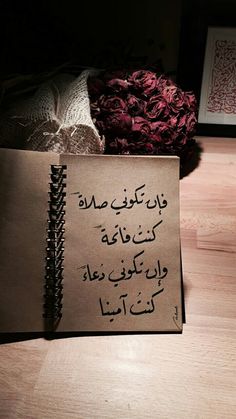 فإن تكوني صلاة
كنتُ فاتحة
وإن تكوني دُعاء
كنتُ آمينا